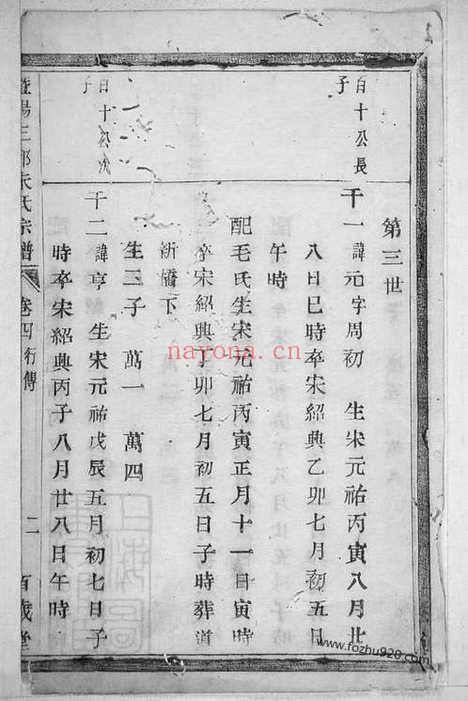 第三世
百十公長
子
千一 諱元字周初 生宋元祐丙寅八月廿
八日巳時卒宋紹興乙卯七月初五日
午時
配毛氏生宋元祐丙寅正月十一日寅時
卒宋紹興丁卯七月初五日子時葬道
新橋下
生子 萬一 萬四
百十公次
子
千二 諱亨 生宋元祐戊辰五月初七日子
時卒宋紹興丙子八月廿八日午時
暨陽三都朱氏宗譜 卷四 行傳 二 百歲堂
nayona.cn
www.fozhu920.com